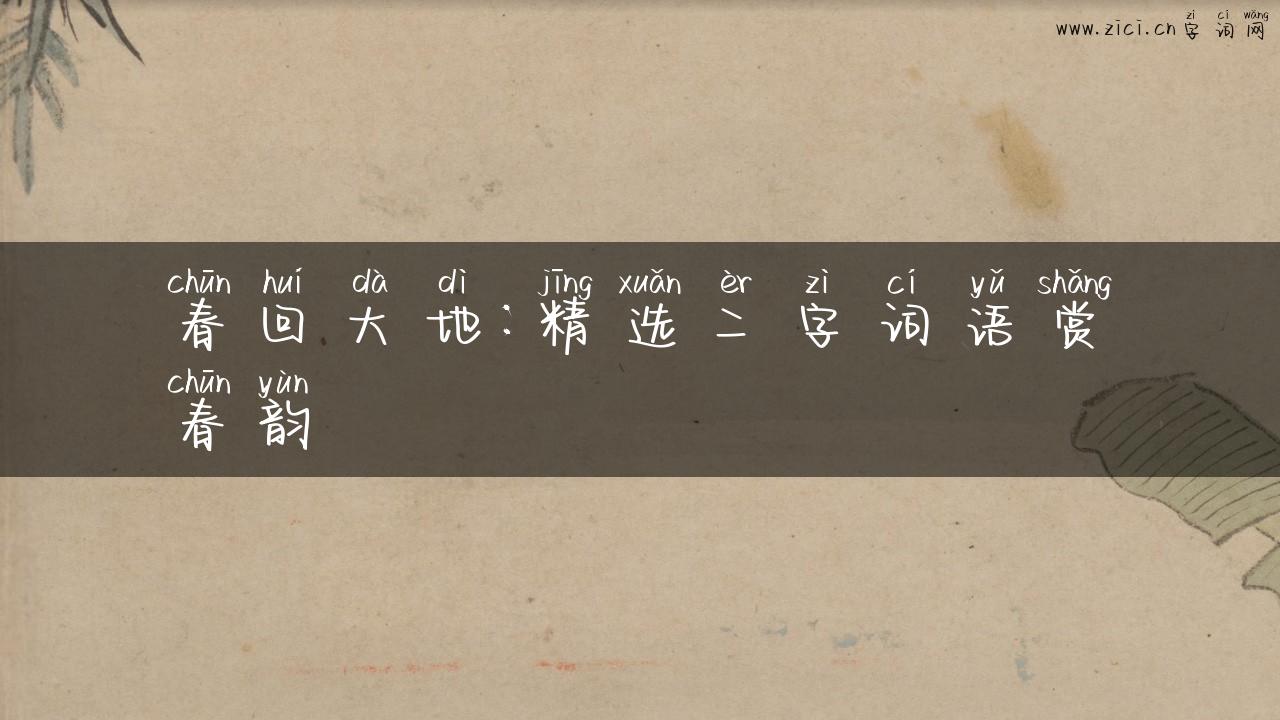 zì cí wǎng
www.zici.cn 字词网
chūn huí dà dì jīng xuǎn èr zì cí yǔ shǎng
春回大地:精选二字词语赏
chūn yùn
春韵